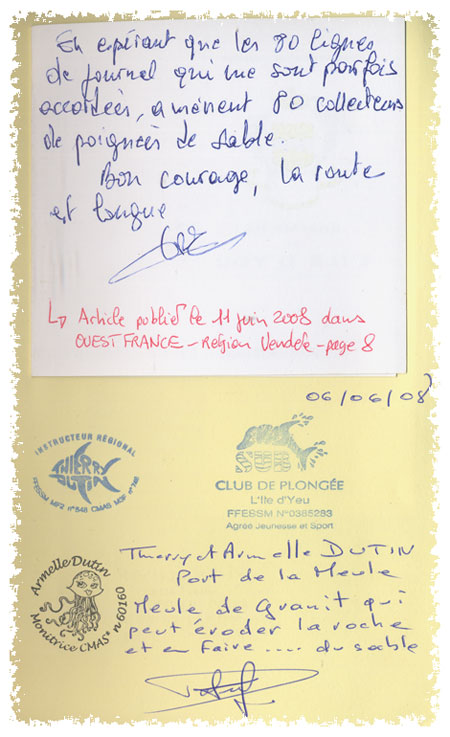 En espérant que les 80 lignes
de journal qui me sont parfois
accordées, amènent 80 collecteurs
de poignées de sable.
Bon courage, la route
est longue
↳ Article publié le 11 juin 2008 dans
OUEST FRANCE - Région Vendée - page 8
06/06/08
INSTRUCTEUR RÉGIONAL
THIERRY
DUTIN
FFESSM MF2 n°548 CMAS MOF n°748
SUB
CLUB DE PLONGÉE
L'Ile d'Yeu
FFESSM N°0385283
Agréé Jeunesse et Sport
Armelle Dutin
Monitrice CMAS* n 60160
Thierry et Armelle DUTIN
Port de la Meule
Meule de Granit qui
peut éroder la roche
et en faire .... du sable